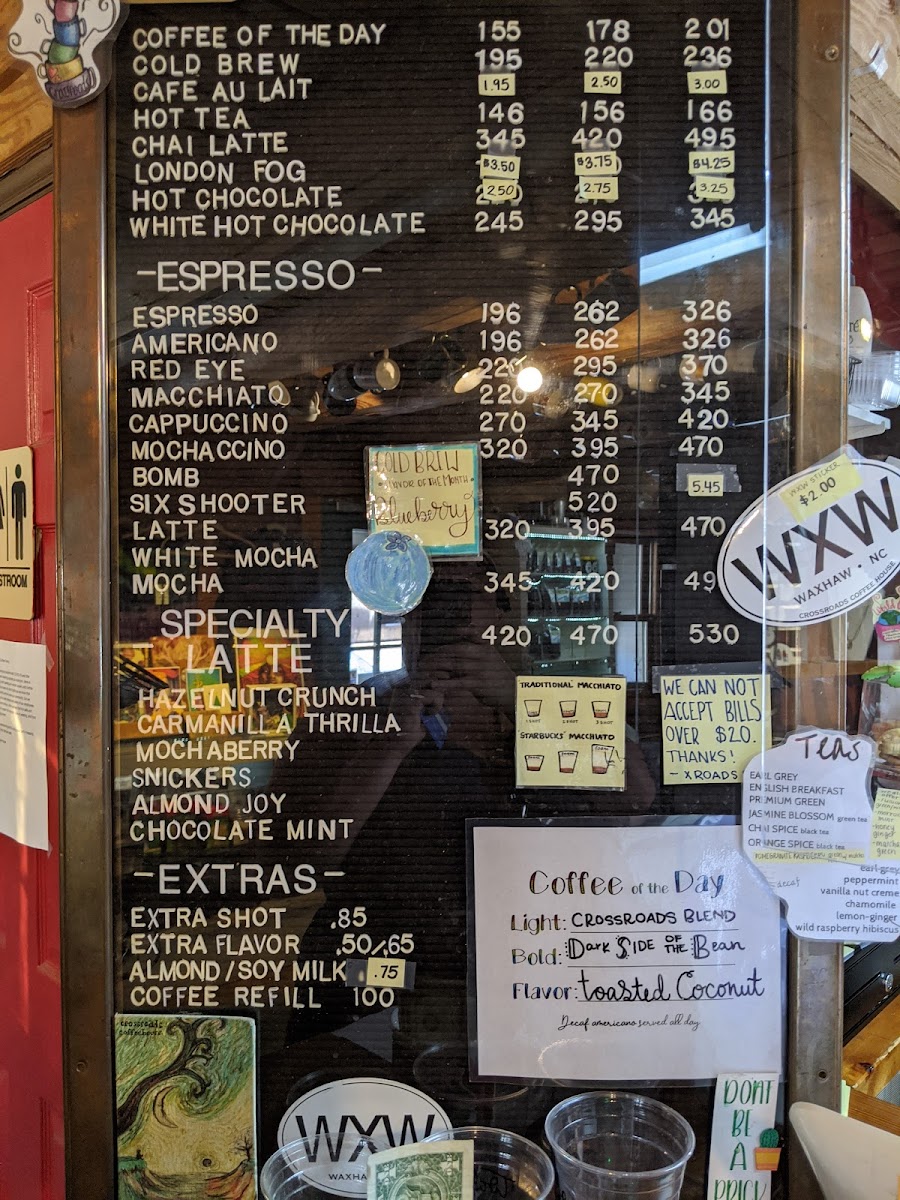 COFFEE OF THE DAY 155 178 201
COLD BREW 195 220 236
CAFE AU LAIT 1.95 2.50 3.00
HOT TEA 146 156 166
CHAI LATTE 345 420 495
LONDON FOG $3.50 $3.75 $4.25
HOT CHOCOLATE 2.50 2.75 3.25
WHITE HOT CHOCOLATE 245 295 345
-ESPRESSO-
ESPRESSO 196 262 326
AMERICANO 196 262 326
RED EYE 220 295 370
MACCHIATO 220 270 345
CAPPUCCINO 270 345 420
MOCHACCINO 320 395 470
BOMB 470 5.45
SIX SHOOTER 520
LATTE 320 395 470
WHITE MOCHA
MOCHA 345 420 49
SPECIALTY 420 470 530
LATTE
HAZELNUT CRUNCH
CARMANILLA THRILLA
MOCHABERRY
SNICKERS
ALMOND JOY
CHOCOLATE MINT
-EXTRAS-
EXTRA SHOT .85
EXTRA FLAVOR .50/.65
ALMOND/SOY MILK .75
COFFEE REFILL 100
COLD BREW
FLAVOR OF THE MONTH
Blueberry
TRADITIONAL MACCHIATO
STARBUCKS MACCHIATO
WE CAN NOT
ACCEPT BILLS
OVER $20.
THANKS!
- XROADS
WXW STICKER
$2.00
WXW
WAXHAW • NC
CROSSROADS COFFEE HOUSE
Teas
EARL GREY
ENGLISH BREAKFAST
PREMIUM GREEN
JASMINE BLOSSOM green tea
CHAI SPICE black tea
ORANGE SPICE black tea
decaf
earl grey
peppermint
vanilla nut creme
chamomile
lemon-ginger
wild raspberry hibiscus
Coffee of the Day
Light: CROSSROADS BLEND
Bold: Dark Side OF THE Bean
Flavor: toasted Coconut
Decaf americano served all day
crossroads
coffeehouse
WXW
WAXHA
DON'T
BE
A
PRICK
STROOM